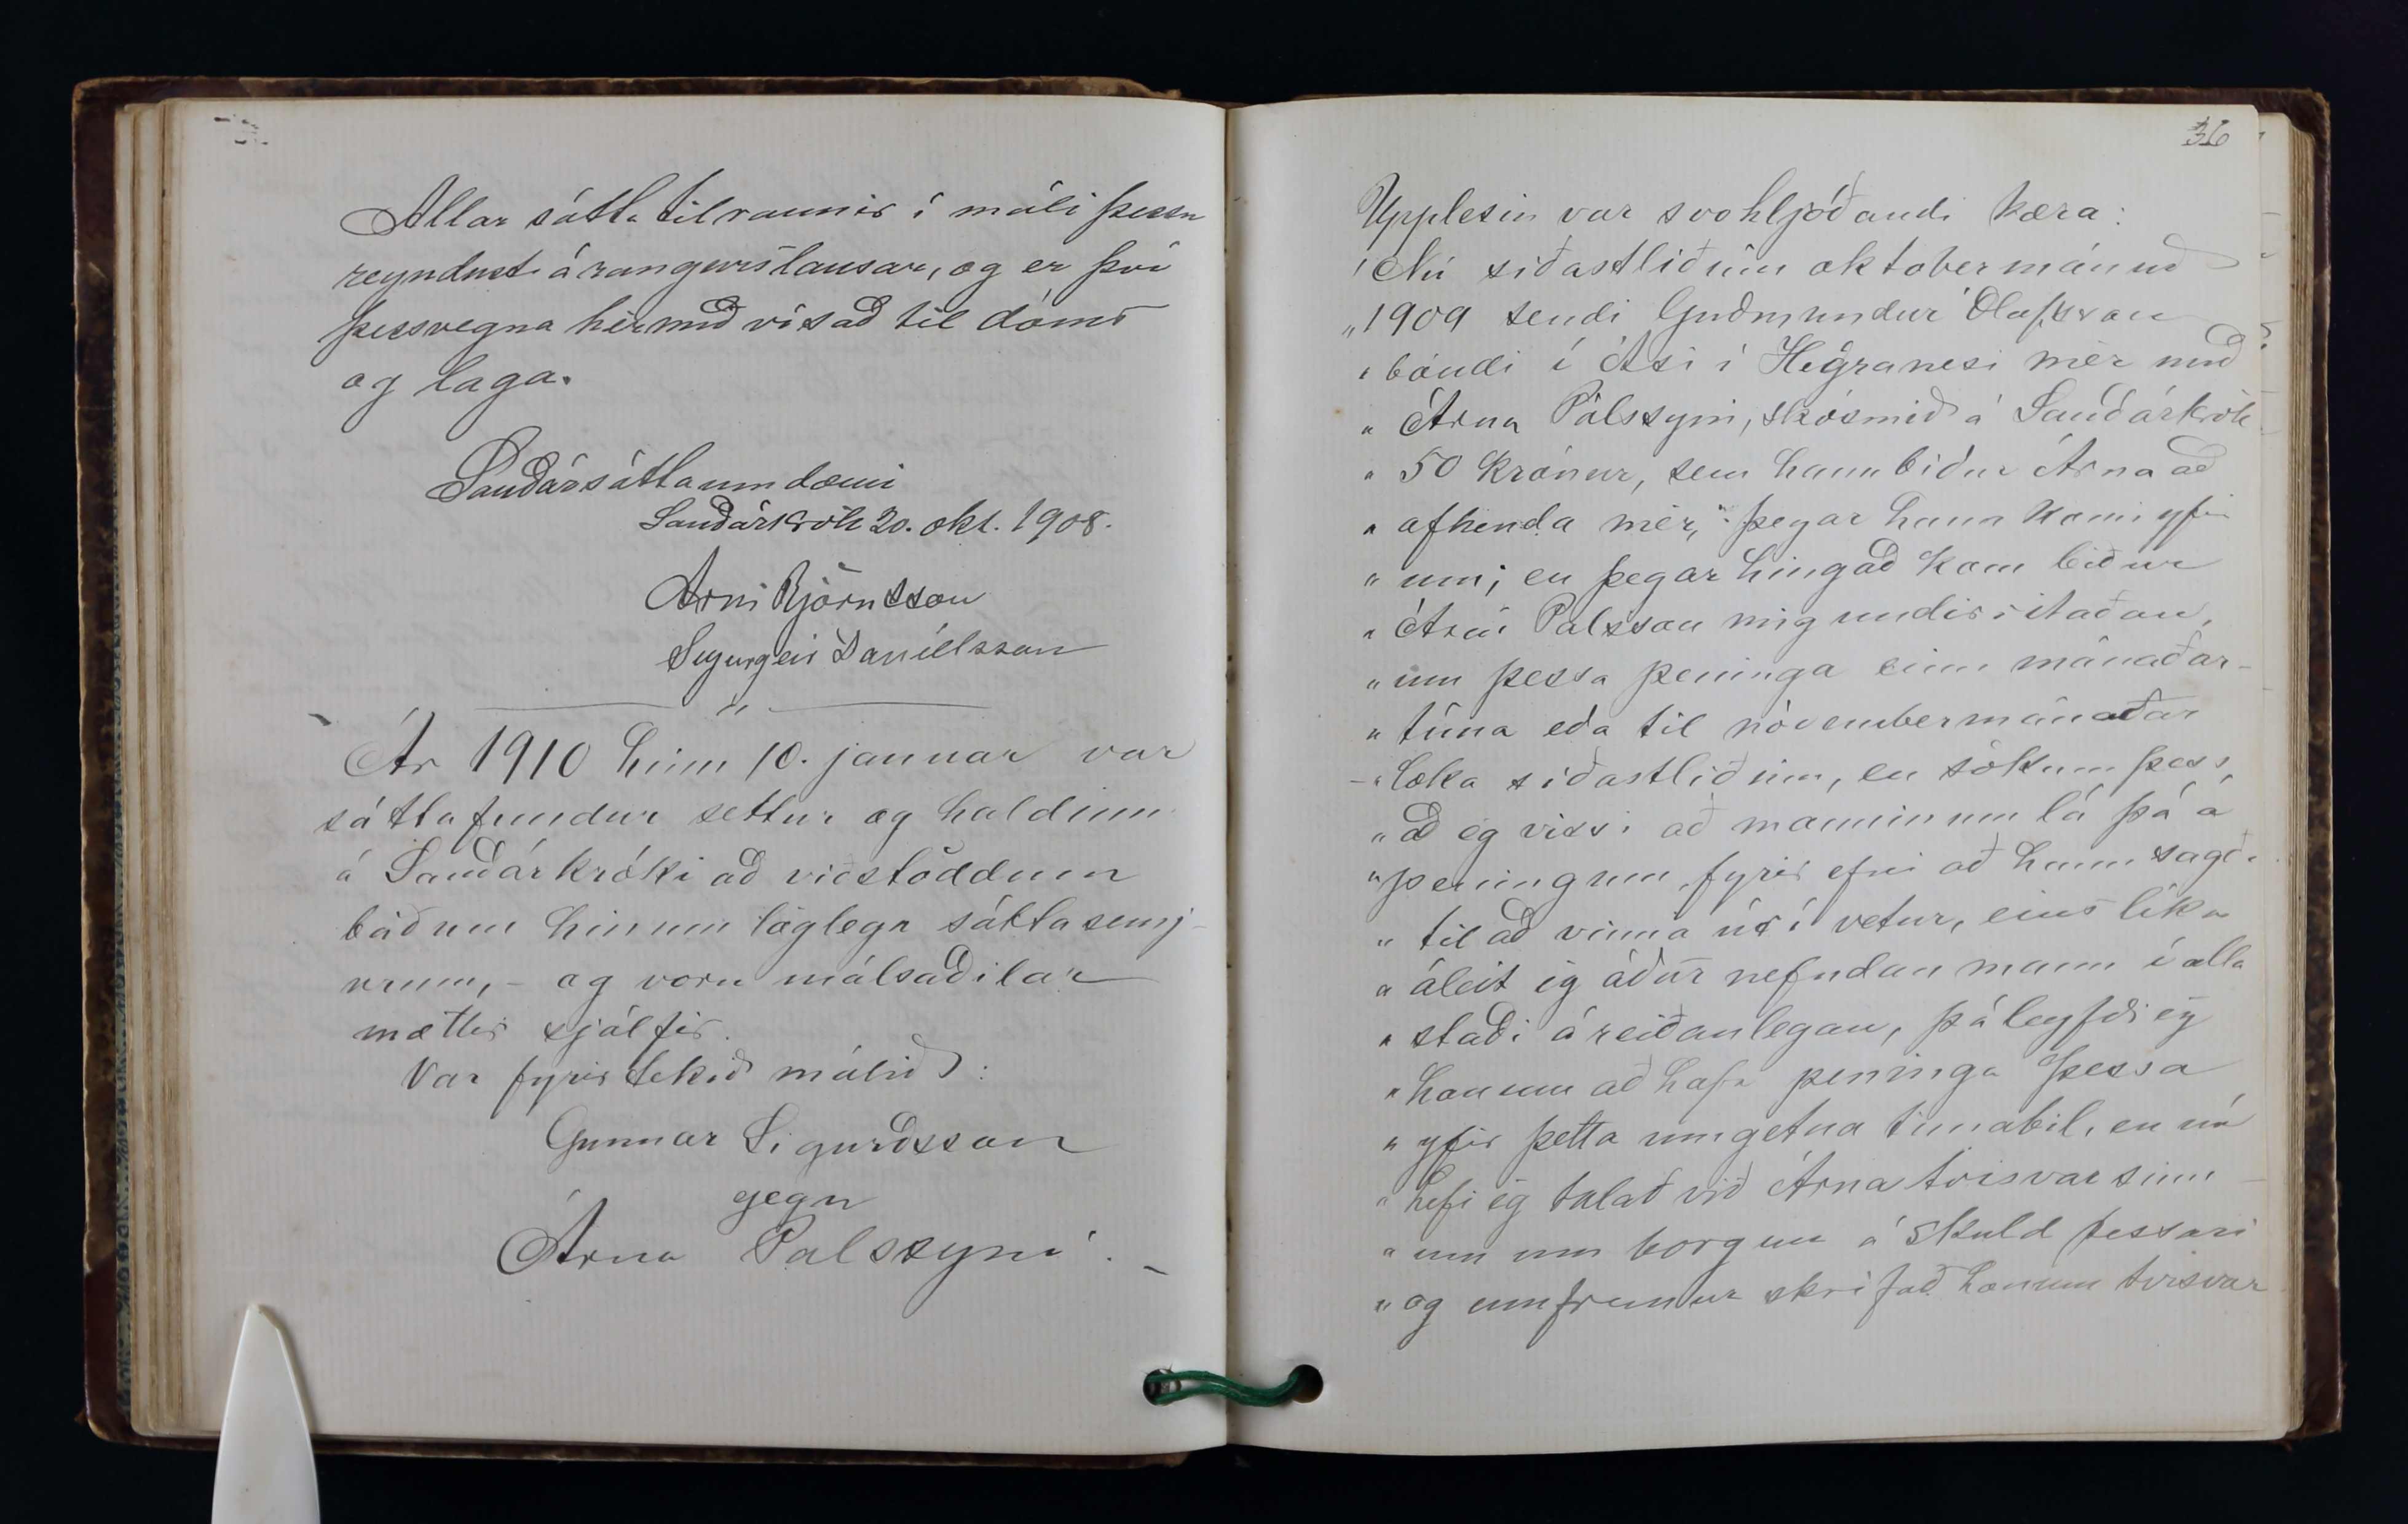 Allar sátta tilraunir í máli þessu
reyndust árangurslausar, og er því
þessvegna hér með vísað til dóms
og laga.
Sauðársáttaumdæmi
Sauðárkrók 20. okt. 1908.
Árni Björnsson
Sigurgeir Daníelsson
Ár 1910 hinn 10. januar var
sáttafundur settur og haldinn
á Sauðárkróki að viðstöddum
báðum hinum löglegu sáttasemj-
urum, - og voru málsaðilar
mættir sjálfir.
Var fyrirtekið málið:
Gunnar Sigurðsson
gegn
Árna Palssyni. -
36
Upplesin var svohljóðandi kæra:
"Nú síðastliðinn oktobermánuð
"1909 sendi Guðmundur Olafsson
"bóndi í Ási í Hegranesi mér með
"Árna Pálssyni, skósmið á Sauðárkrók
"50 krónur, sem hann biður Árna að
"afhenda mér, þegar hann komi yfir
"um; en þegar hingað kom biður
"Árni Palsson mig undirritaðan,
"um þessa peninga einn mánaðar-
"tíma eða til nóvembermánaðar
"loka síðastliðinn, en sökum þess,
"að eg vissi að manninum lá þá á
"peningum fyrir efni að hann sagði
"til að vinna úr í vetur, eins líka
"áleit eg áður nefndan mann í alla
"staði áreiðanlegan, þá leyfði eg
"honum að hafa peninga þessa
"yfir þetta umgetna timabil, en nú
"hefi eg talað við Árna tvisvar sinn-
"um um borgun á skuld þessari
"og ennfremur skrifað honum tvisvar